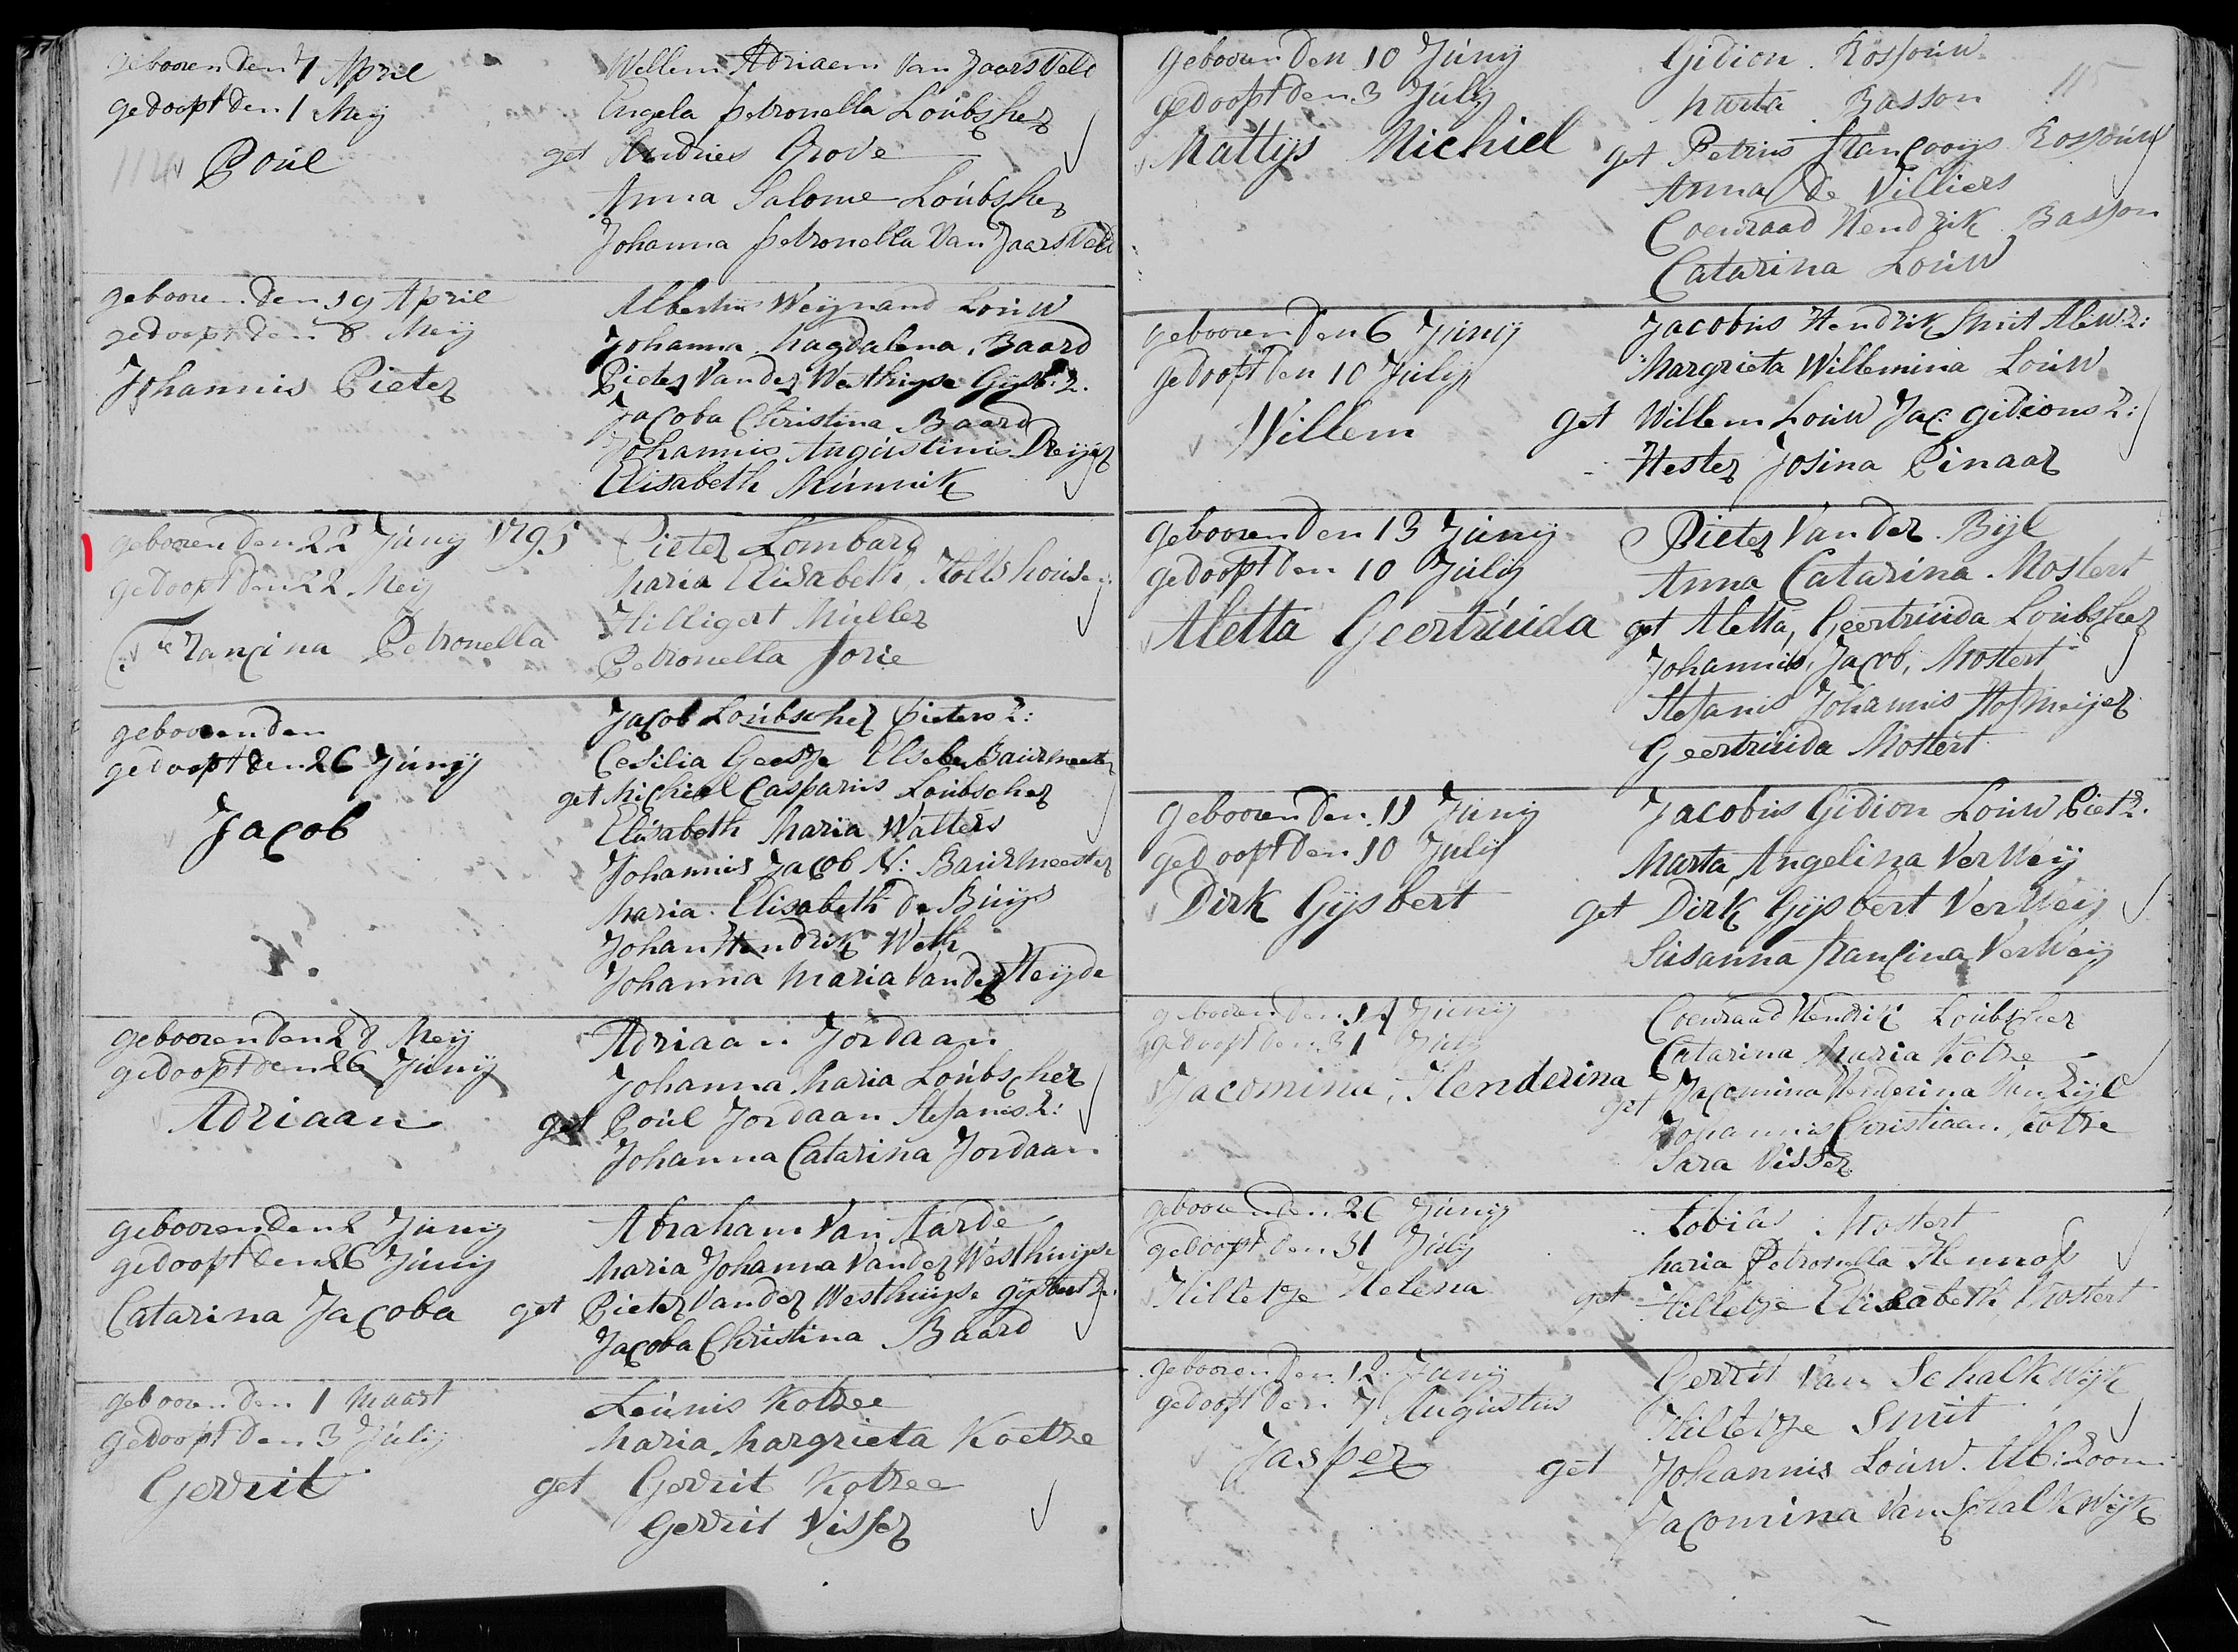 gebooren den 7 April
gedoopt den 1 Meij
114
Poúl
Willem Adriaem Van Jaarsveld
Engela petronella Loúbscher
get Andries Grove
Anna Salome Loúbscher
Johanna petronella Van Jaarsveld
geboren den 19 April
gedoopt den 8 Meij
Johannis Pieter
Albertus Weijnand Loúw
Johanna Magdalena Baard
Pieter Van der Westhúyse Gijsb: z.
Jacoba Christina Baard
Johannis Aúgústinis Dreijer
Elisabeth Múnnik
geboren den 22 Júnij 1795
gedoopt den 22 Meij
Francina Petronella
Pieter Lombard
Maria Elisabeth Holtshoúsen
Hilligert Múller
Petronella Jorie
gebooren den
gedoopt den 26 Júnij
Jacob
Jacob Loúbscher pieters z:
Cesilia Geesje Elseber Baúrmeester
get Michiel Casparús Loúbscher
Elisabeth Maria Walters
Johannis Jacob N: Baúrmeester
Maria Elisabeth De Búijs
Johan Hendrik Weth
Johanna Maria Van der Heijde
gebooren den 28 Meij
gedoopt den 26 Júnij
Adriaan
Adriaan Jordaan
Johanna Maria Loúbscher
get Poúl Jordaan Stefanis z:
Johanna Catarina Jordaan
gebooren den 2 Júnij
gedoopt den 26 Júnij
Catarina Jacoba
Abraham Van Aarde
Maria Johanna Van der Westhúijse
get Pieter Van der Westhúijse gijsbert z:
Jacoba Christina Baard
gebooren den 1 Maart
gedoopt den 3 Júlij
Gerrit
Leúnis Kotzee
Maria Margrieta Koetze
get Gerrit Kotzee
Gerrit Visser
115
gebooren den 10 Júnij
gedoopt den 3 Júlij
Mattijs Michiel
Gidion Rossoúw
Marta Basson
get Petrús Francooijs Rossoúw
Anna De Villiers
Coenraad Hendrik Basson
Catarina Loúw
gebooren den 6 Júnij
gedoopt den 10 Júlij
Willem
Jacobús Hendrik Smit Alew: z:
Margrieta Willemina Loúw
get Willem Loúw Jac: gidions z:
Hester Josina Pinaar
gebooren den 13 Júnij
gedoopt den 10 Júlij
Aletta Geertrúida
Pieter Van der Bijl
Anna Catarina Mostert
get Aletta Geertrúida Loúbscher
Johannis Jacob Mostert
Stefanis Johannis Hofmeijer
Geertrúida Mostert
gebooren den 11 Júnij
gedoopt den 10 Júlij
Dirk Gijsbert
Jacobús Gidion Loúw Piet z:
Marta Angelina Verweij
get Dirk Gijsbert Verweij
Súsanna francina Verweij
gebooren den 14 Júnij
gedoopt den 31 Júlij
Jacomina Henderina
Coenraad Hendrik Loúbscher
Catarina Maria Kotze
get Jacomina Henderina Van Zijl
Johannis Christiaan Kotze
Sara Visser
gebooren den 26 Júnij
gedoopt den 31 Júlij
Hilletje Helena
Tobias Mostert
Maria Petronella Hennop
get Hilletje Elisabeth Mostert
gebooren den 12 Júnij
gedoopt den 7 Aúgústús
Jasper
Gerrit Van Schalkwijk
Hilletje Smit
get Johannis Loúw Alb: Zoon
Jacomina Van Schalkwijk